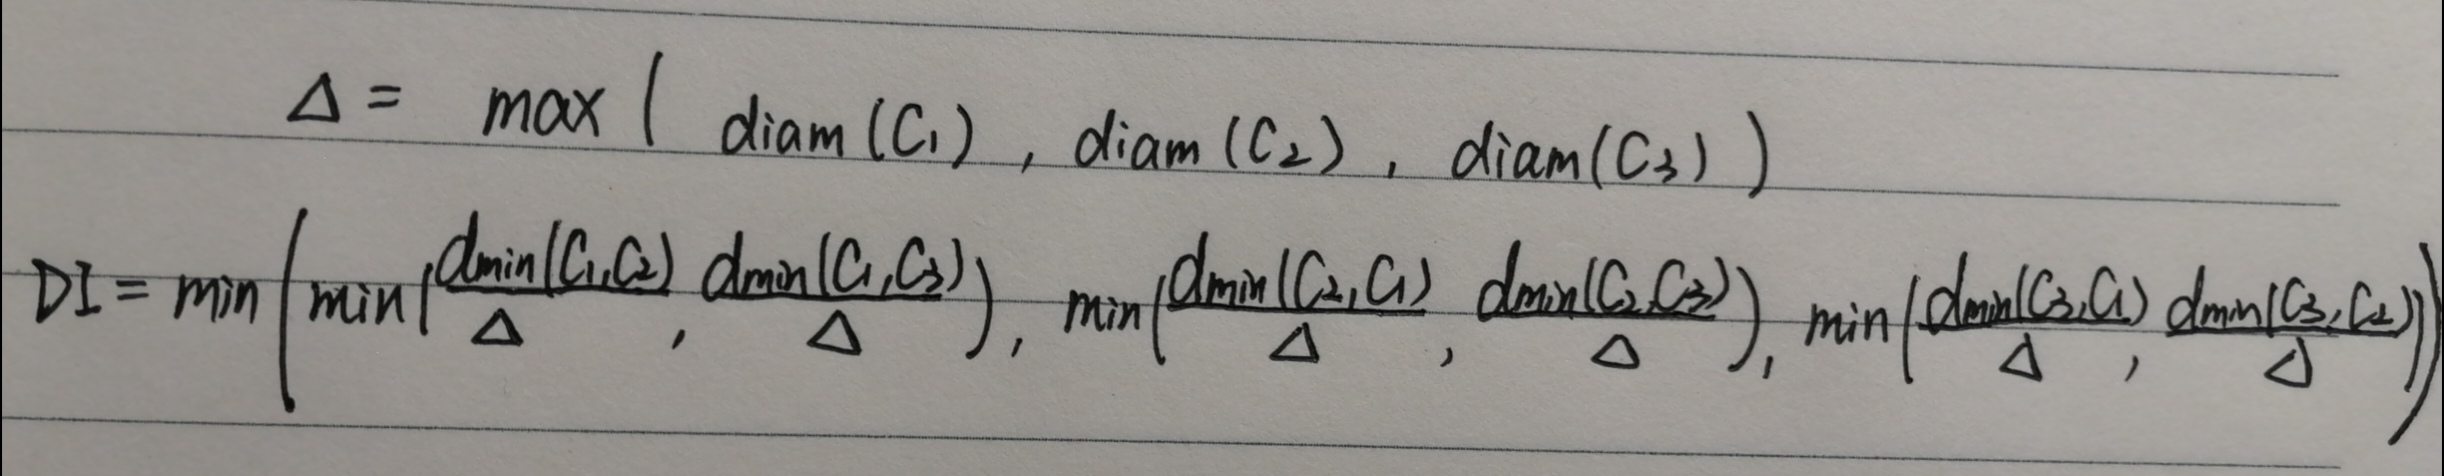 Δ = max ( diam(C₁) , diam(C₂) , diam(C₃) )
DI = min ( min ( dmin(C₁,C₂)/Δ , dmin(C₁,C₃)/Δ ) , min ( dmin(C₂,C₁)/Δ , dmin(C₂,C₃)/Δ ) , min ( dmin(C₃,C₁)/Δ , dmin(C₃,C₂)/Δ ) )